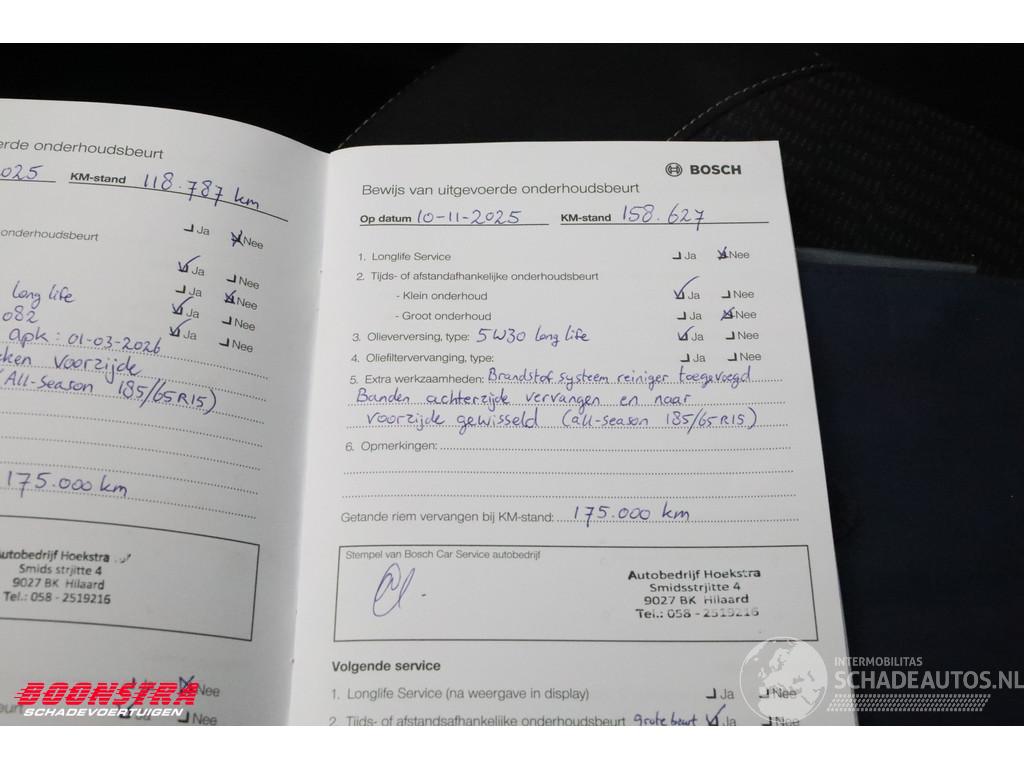 erde onderhoudsbeurt
025 KM-stand 118.787 km
onderhoudsbeurt
Ja Nee
Ja Nee
long life Ja Nee
082 Ja Nee
apk: 01-03-2026 Ja Nee
ken voorzijde
(All-season 185/65R15)
175.000 km
utobedrijf Hoekstra
Smids strjitte 4
9027 BK Hilaard
Tel.: 058 - 2519216
Nee
Ja Nee
BOSCH
Bewijs van uitgevoerde onderhoudsbeurt
Op datum 10-11-2025 KM-stand 158.627
1. Longlife Service Ja Nee
2. Tijds- of afstandafhankelijke onderhoudsbeurt
- Klein onderhoud Ja Nee
- Groot onderhoud Ja Nee
3. Olieverversing, type: 5W30 long life Ja Nee
4. Oliefiltervervanging, type: Ja Nee
5. Extra werkzaamheden: Brandstof systeem reiniger toegevoegd
Banden achterzijde vervangen en naar
voorzijde gewisseld (all-season 185/65R15)
6. Opmerkingen:
Getande riem vervangen bij KM-stand: 175.000 km
Stempel van Bosch Car Service autobedrijf
Autobedrijf Hoekstra
Smidsstrjitte 4
9027 BK Hilaard
Tel.: 058 - 2519216
Volgende service
1. Longlife Service (na weergave in display) Ja Nee
2. Tijds- of afstandsafhankelijke onderhoudsbeurt grote beurt Ja Nee
BOONSTRA
SCHADEVOERTUIGEN
INTERMOBILITAS
SCHADEAUTOS.NL